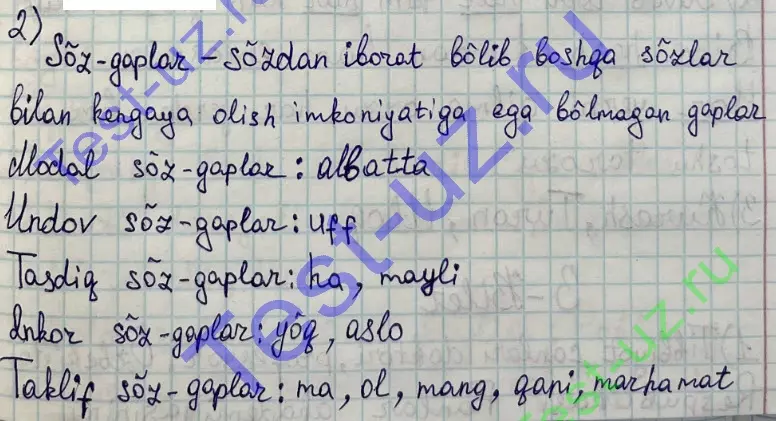 2)
Sõz-gaplar – sõzdan iborat bõlib boshqa sõzlar
bilan kengaya olish imkoniyatiga ega bõlmagan gaplar
Modal sõz-gaplar: albatta
Undov sõz-gaplar: uff
Tasdiq sõz-gaplar: ha, mayli
Inkor sõz-gaplar: yõq, aslo
Taklif sõz-gaplar: ma, ol, mang, qani, marhamat
Test-uz.ru
Test-uz.ru
test-uz.ru